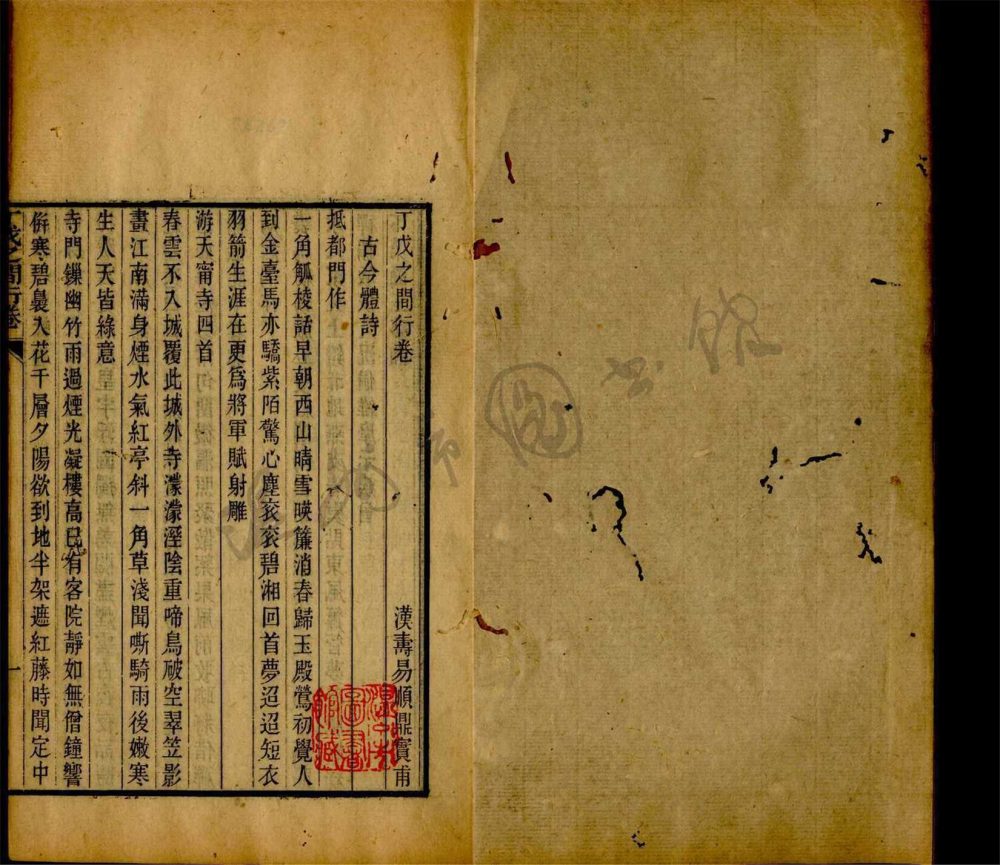 丁戊之間行卷
漢壽易順鼎實甫
古今體詩
抵都門作
一角觚棱話早朝西山晴雪暎簾消春歸玉殿鶯初覺人
到金臺馬亦驕紫陌驚心塵衮衮碧湘回首夢迢迢短衣
羽箭生涯在更爲將軍賦射雕
游天甯寺四首
春雲不入城覆此城外寺濛濛溼陰重啼鳥破空翠笠影
畫江南滿身煙水氣紅亭斜一角草淺聞嘶騎雨後嫩寒
生人天皆綠意
寺門鏁幽竹雨過煙光凝樓高已有客院靜如無僧鐘響
倂寒碧裊入花千層夕陽欲到地半架遮紅藤時聞定中
丁戊之間行卷
一
圖書館藏
圖書館